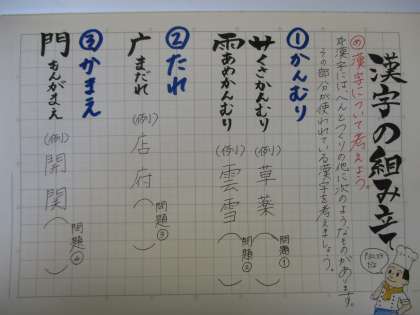 漢字の組み立て
め 漢字について考えよう。
本漢字には、へんとつくりの他に次のようなものがあります。
その部分が使われている漢字を考えましょう。
①かんむり
艹くさかんむり (例) 草 薬 ( 問題①
雨あめかんむり (例) 雲 雪 ( ) 問題②
②たれ
广まだれ (例) 店 府 ( ) 問題③
③かまえ
門もんがまえ (例) 開 関 ( ) 問題④